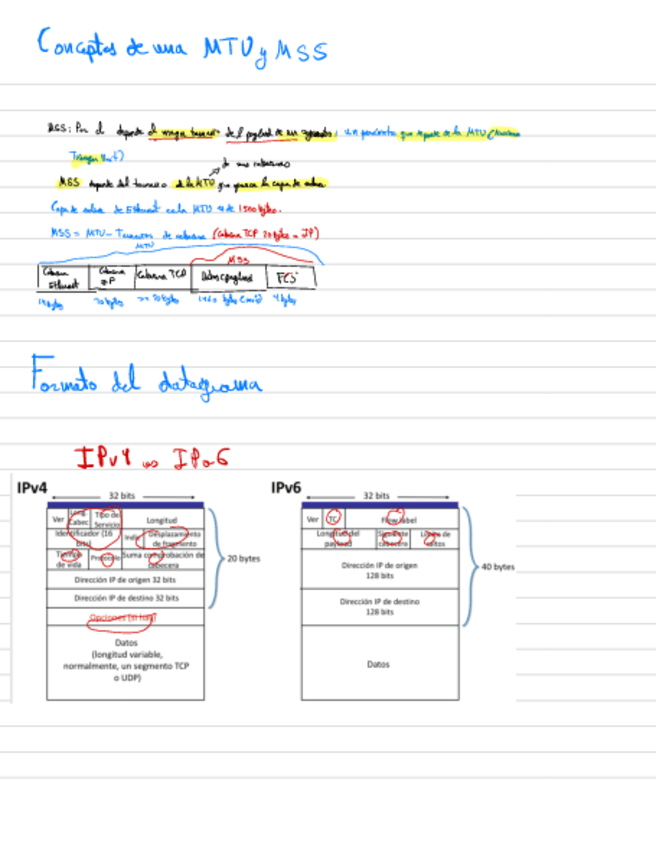 Conceptos de una MTU y MSS
MSS: Por el depende el mayor tamaño del payload de un segmento, un parámetro que depende de la MTU (
Unit)
de una
MSS depende del tamaño de la MTU que la capa de enlace
Capa de enlace de Ethernet en la MTU es de 1500 bytes.
MSS = MTU - Tamaños de cabecera (cabecera TCP 20 bytes = IP)
MTU
MSS
Cabecera Ethernet Cabecera IP Cabecera TCP Datos (payload) FCS
20 bytes 20 bytes 1460 bytes 4 bytes
Formato del datagrama
IPv4 vs IPv6
IPv4 IPv6
32 bits 32 bits
Ver Long Cabec Tipo de Servicio Longitud
Identificador (16 bits) Indic Desplazamiento de fragmento
Tiempo de vida Protocolo Suma comprobación de cabecera
20 bytes
Dirección IP de origen 32 bits
Dirección IP de destino 32 bits
Opciones (si hay)
Datos
(longitud variable,
normalmente, un segmento TCP
o UDP)
Ver TC Flow label
Longitud del payload Siguiente cabecera Límite de saltos
Dirección IP de origen
128 bits
40 bytes
Dirección IP de destino
128 bits
Datos